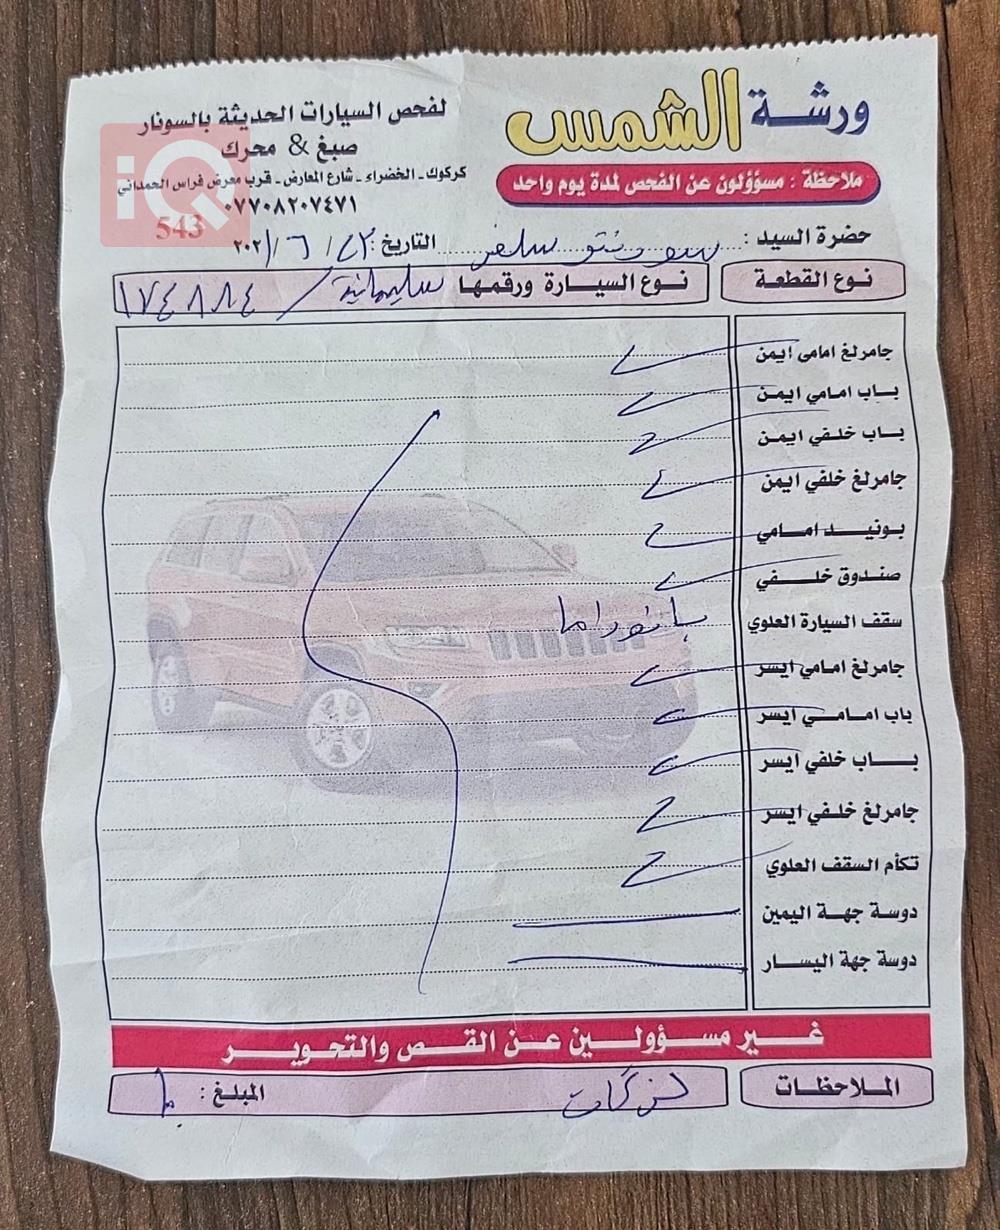 ورشة الشمس
لفحص السيارات الحديثة بالسونار
صبغ & محرك
ملاحظة : مسؤؤلون عن الفحص لمدة يوم واحد
كركوك - الخضراء - شارع المعارض - قرب معرض فراس الحمداني
٠٧٧٠٨٢٠٧٤٧١
iQ
543
حضرة السيد : سورنتو سلفر التاريخ : ٢٢ / ٦ / ٢٠٢
نوع القطعة
نوع السيارة ورقمها سليمانية / ١٧٤٨٨٤
جامرلغ امامي ايمن
باب امامي ايمن
باب خلفي ايمن
جامرلغ خلفي ايمن
بونيد امامي
صندوق خلفي
سقف السيارة العلوي بانوراما
جامرلغ امامي ايسر
باب امامي ايسر
باب خلفي ايسر
جامرلغ خلفي ايسر
تكأم السقف العلوي
دوسة جهة اليمين
دوسة جهة اليسار
غير مسؤولين عن القص والتحوير
الملاحظات
المبلغ :